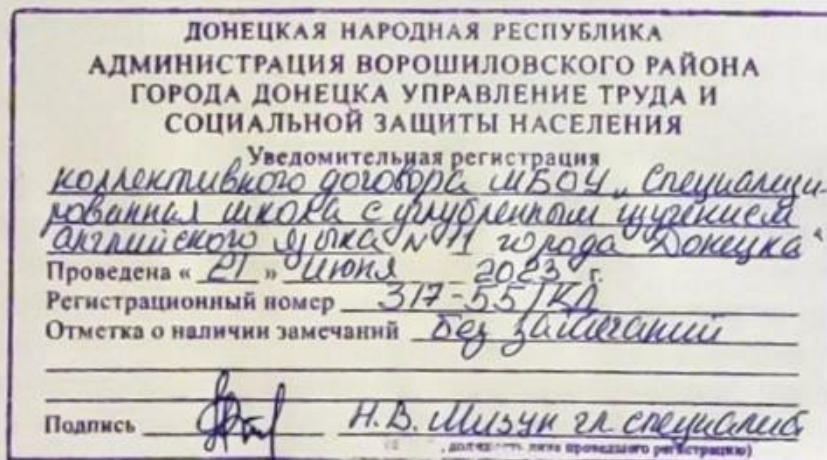 ДОНЕЦКАЯ НАРОДНАЯ РЕСПУБЛИКА
АДМИНИСТРАЦИЯ ВОРОШИЛОВСКОГО РАЙОНА
ГОРОДА ДОНЕЦКА УПРАВЛЕНИЕ ТРУДА И
СОЦИАЛЬНОЙ ЗАЩИТЫ НАСЕЛЕНИЯ
Уведомительная регистрация
коллективного договора МБОУ „Специализи-
рованная школа с углубленным изучением
английского языка №11 города Донецка“
Проведена « 21 » июня 2023 г.
Регистрационный номер 317-55/КД
Отметка о наличии замечаний Без замечаний
Подпись Н.В. Мизун гл. специалист
должность лица проведшего регистрацию)